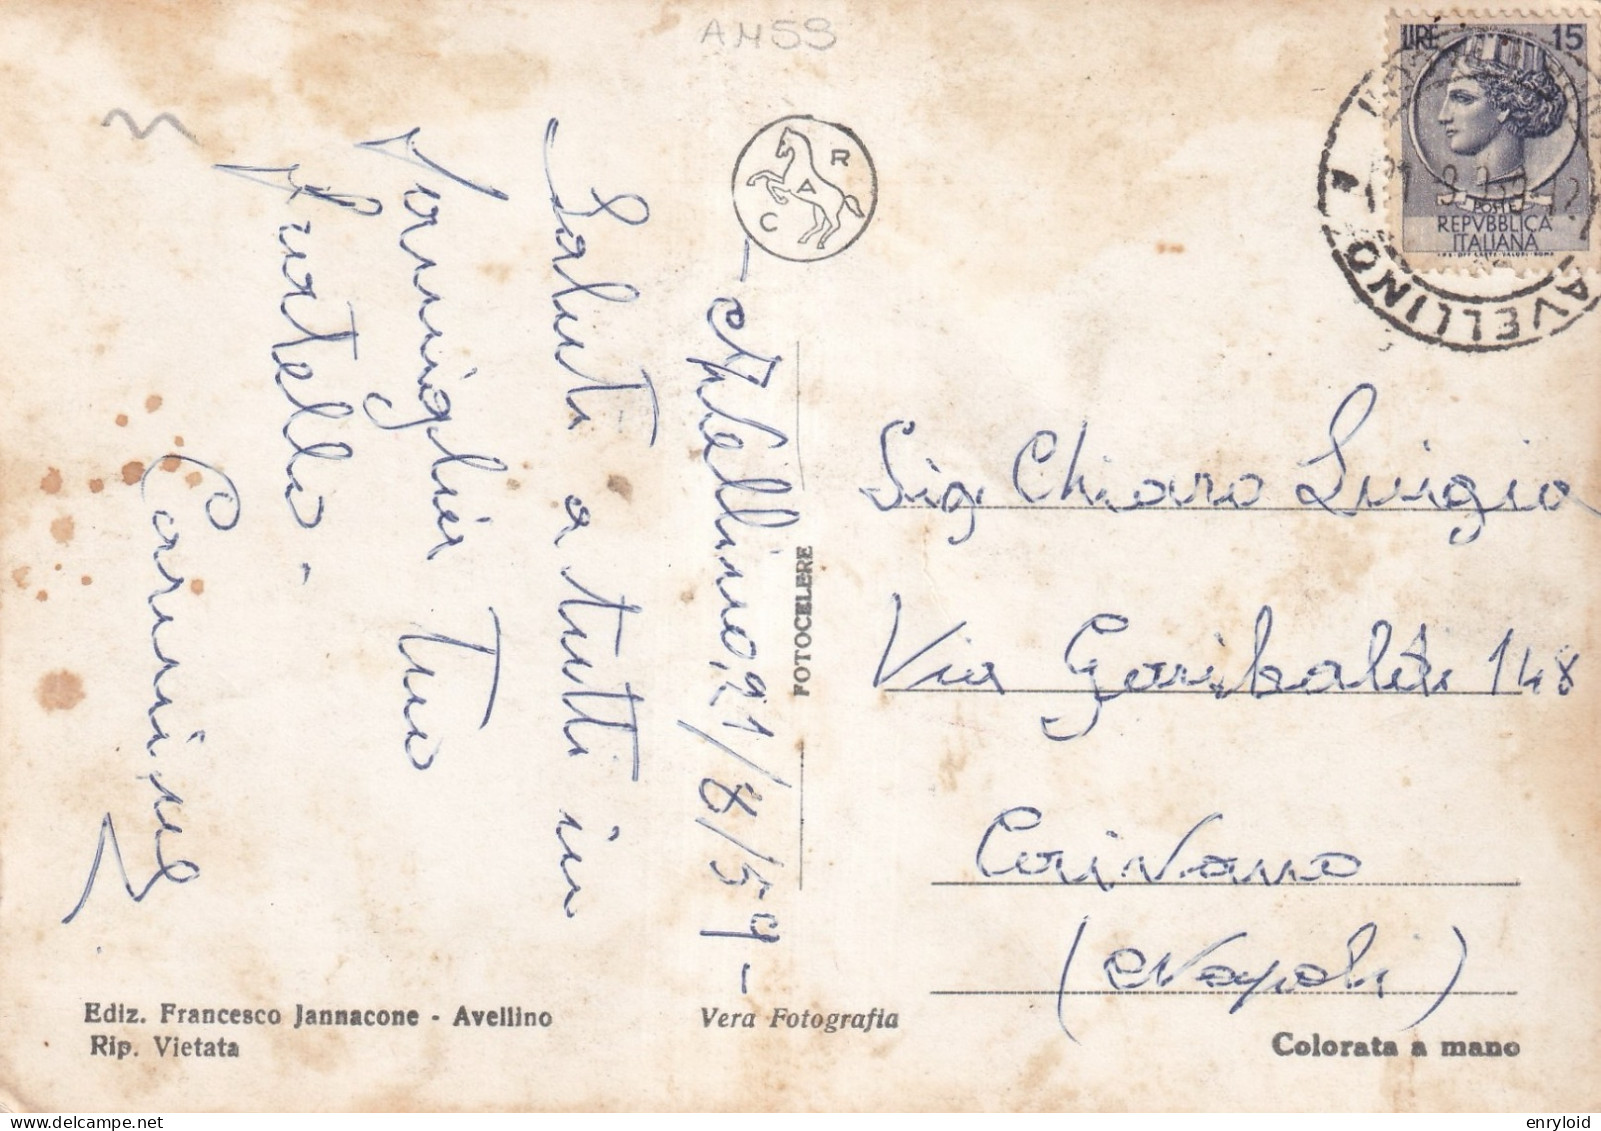 AM59
LIRE 15
POSTE
REPVBBLICA
ITALIANA
AVELLINO
R
A
C
- Avellino, 21/8/59 -
Saluti a tutti in
famiglia Tuo
fratello -
Carmine
FOTOCELERE
Sig. Chiaro Luigia
Via Garibaldi 148
Casivano
(Napoli)
Ediz. Francesco Jannacone - Avellino
Rip. Vietata
Vera Fotografia
Colorata a mano
delcampe.net
enryloid